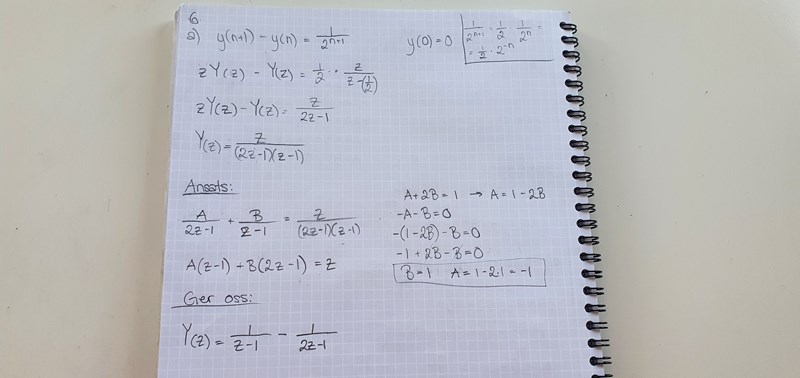 6
a) y(n+1) - y(n) = 1/2^(n+1) y(0) = 0
1/2^(n+1) = 1/2 · 1/2^n =
= 1/2 · 2^-n
zY(z) - Y(z) = 1/2 · z/(z-(1/2))
zY(z) - Y(z) = z/(2z-1)
Y(z) = z/((2z-1)(z-1))
Ansats:
A/(2z-1) + B/(z-1) = z/((2z-1)(z-1))
A(z-1) + B(2z-1) = z
A+2B = 1 → A = 1-2B
-A-B = 0
-(1-2B)-B = 0
-1+2B-B = 0
B = 1 A = 1-2·1 = -1
Ger oss:
Y(z) = 1/(z-1) - 1/(2z-1)